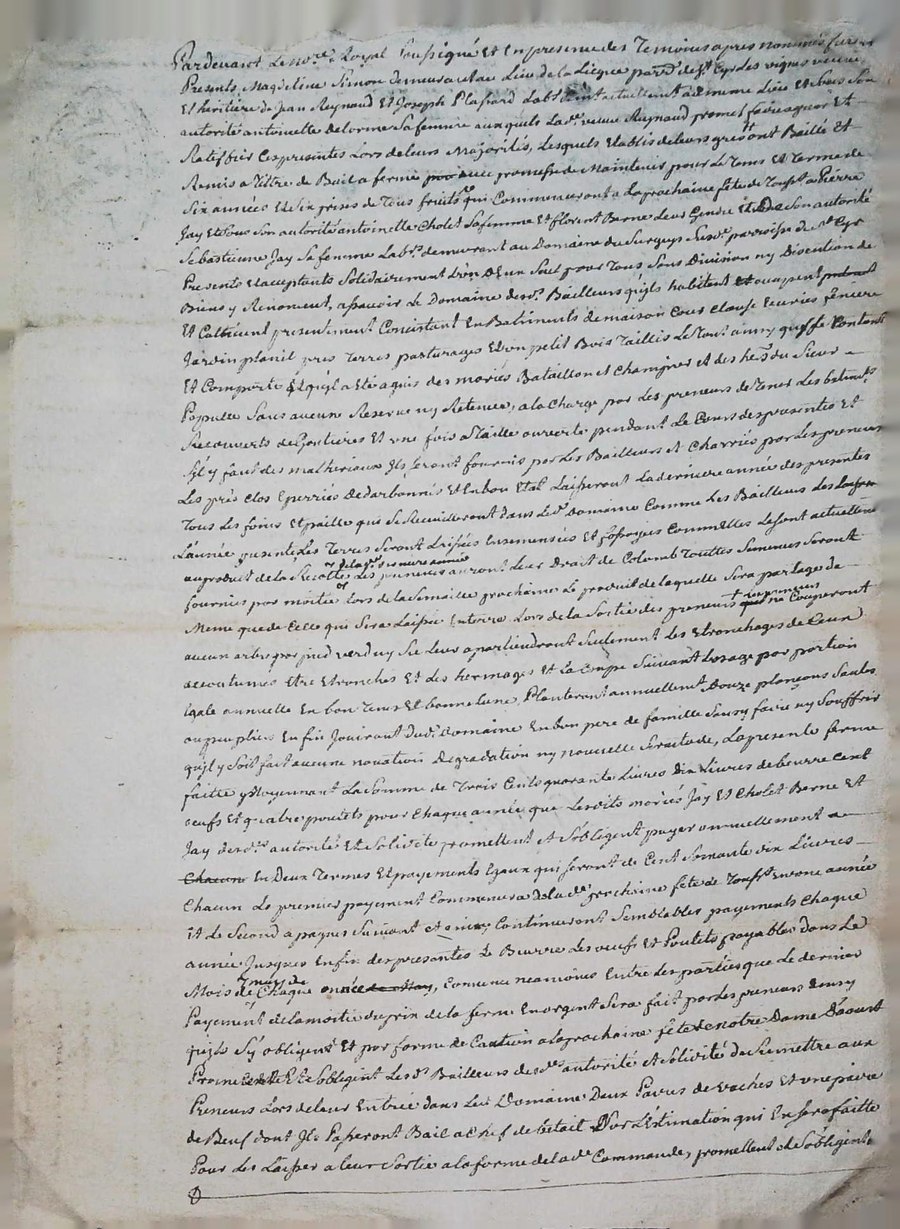 Pardevant Le no.re Royal Soussigné Et En presence des Temoins apres nommés furent
Presents Magdeleine Simon demeurant au Lieu de la Liegue par.sse de S.t Cyr des vignes veuve
Et heritiere de Jean Reynaud Et Joseph Plassard Lab.r demeurant au meme Lieu Et sous Son
autorité antoinette delorme Sa femme auxquels Lad.e veuve Raynaud promet faire agréer Et
Ratiffier Ces presentes Lors de leurs Majorités, Lesquels Etablis de leurs grés ont Baillé Et
Remis a Titre de Bail a ferme avec promesse de Maintenir pour Le Tems Et Terme de
Six années Et Six prises de Tous fruits qui Commenceront a La prochaine fête de Touss.ts a Pierre
Jay Et sous Son autorité antoinette Cholet Sa femme Et florent Berne Leur Gendre Et de Son autorité
Sebastienne Jay Sa femme Lab.rs demeurant au Domaine de Surgeys Susd.e parroisse de S.t Cyr
Presents Et acceptants Solidairement L'un D'Eux Seul pour Tous Sans Division ny Discution de
Biens y Renoncent, a scavoir Le Domaine desd.s Bailleurs qu'jls habitent Et occupent
Et Cultivent presentement Consistent En Batiments de maison Cour Clause Ecuries feniere
Jardin prés Terres pasturages Et un petit Bois Taillis Le Tout ainsy qu'jl se Contient
Et Comporte Et qu'jl a Eté aquis des mariés Bataillon Et Champier Et des her.s du Sieur
Populle Sans aucune Reserve ny Retenue, a la Charge par Les preneurs de Tenir Les batiments
Recouverts de Goutieres Et une fois a Taille ouverte pendant Le Cours des presentes Et
S'jl y faut des matheriaux Jls Seront fournis par Les Bailleurs Et Charriés par Les preneurs
Les prés Clos Eperriés Dedarbonnés Et En bon Etat Laisseront La derniere année des presentes
Tous Les foins Et paille qui Se Recuilleront dans Led.t Domaine Comme Les Bailleurs
L'année presente, Les Terres Seront Laissées Ensemencées Et fossoyées Comme Elles Le sont actuellement
au produit de La Recolte Les preneurs auront Leur Droit de Colomb Touttes Semences Seront
fournies par moitié Lors de la Semaille prochaine Le produit de laquelle Sera partagé de
Meme que de Celle qui Sera Laissée En terre Lors de la Sortie des preneurs Les preneurs ne Couperont
aucun arbre par pied verd ny Sec Leur apartiendront Seulement Les Etronchages de Ceux
accoutumés Etre Etronchés Et des hermages Et La Coupe Suivant L'usage par portion
Egale annuelle En bon Tems Et bonne Lune, Planteront annuellement Douze plançons Saules
ou peupliers En fin Jouiront dud.t Domaine En bon pere de famille Sans y faire ny Souffrir
qu'jl y Soit fait aucune novation Degradation ny nouvelle Servitude, La presente ferme
faitte Moyennant La Somme de Trois Cents quarante Livres Dix Livres de beurre Cent
oeufs Et quatre poulets pour Chaque année que Lesdits mariés Jay Et Cholet Berne Et
Jay desd.s autorités Et Solidité promettent Et S'obligent payer annuellement
Chacun En Deux Termes Et payements Egaux qui Seront de Cent Soixante dix Livres
Chacun Le premier payement Commencera a Lad.e prochaine fête de Touss.ts En une année
Et Le Second a paques Suivant Et ainsy Continueront Semblables payements Chaque
année Jusques En fin des presentes Le Beurre Les oeufs Et Poulets payables dans Le
Mois de May de Chaque année, Convenu neamoins Entre Les parties que Le dernier
Payement de la moitié du prix de la ferme En argent Sera fait par Les preneurs
qu'jls S'y obligent Et par forme de Caution a La prochaine fête de notre Dame D'aoust
Promettent Et S'obligent Lesd.s Bailleurs desd.s autorité Et Solidité de Remettre aux
Preneurs Lors de leur Entrée dans Led.t Domaine Deux Paires de vaches Et une paire
de Bœuf dont Jls Passeront Bail a Chef de betail D'or L'Estimation qui En Sera faitte
Pour Les Laisser a leur Sortie a la forme de la d.e Commande, promettent Et S'obligent